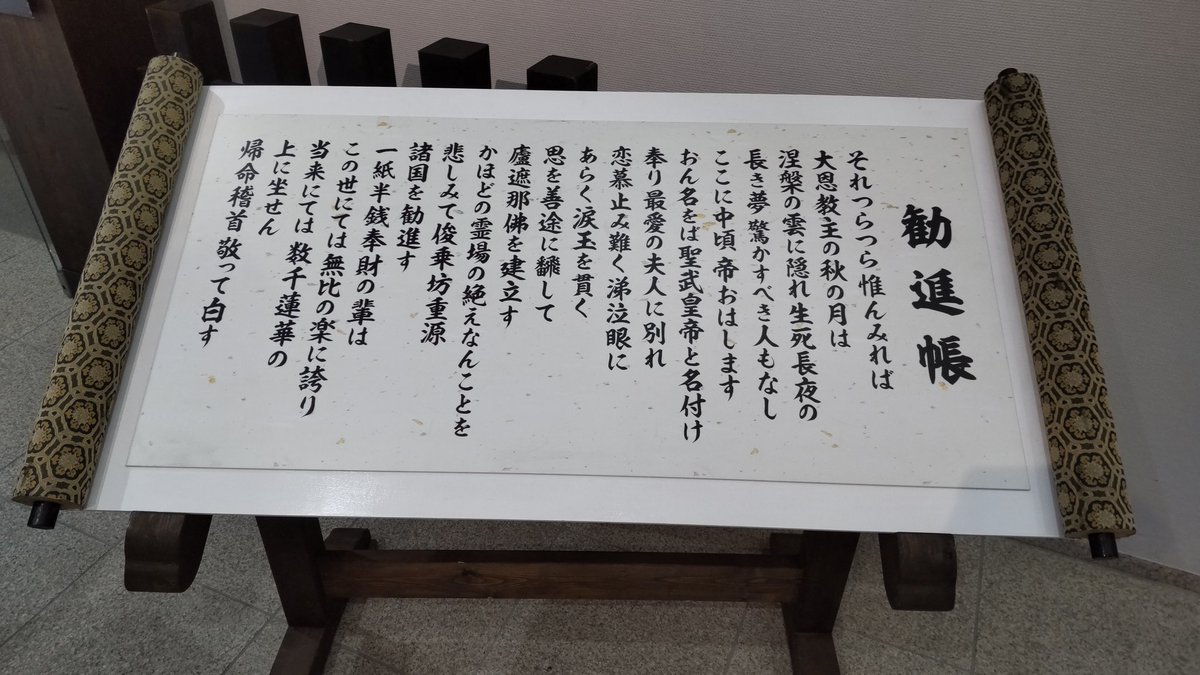 勧進帳
それつらつら惟んみれば
大恩教主の秋の月は
涅槃の雲に隠れ生死長夜の
長き夢 驚かすべき人もなし
ここに中頃 帝おはします
おん名をば聖武皇帝と名付け
奉り最愛の夫人に別れ
恋慕止み難く涕泣眼に
あらく涙玉を貫く
思を善途に飜して
廬遮那佛を建立す
かほどの霊場の絶えなんことを
悲しみて俊乗坊重源
諸国を勧進す
一紙半銭奉財の輩は
この世にては無比の楽に誇り
当来にては 数千蓮華の
上に坐せん
帰命稽首 敬って白す